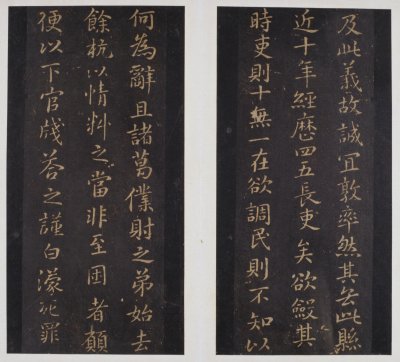 及此義故誠宜敦率然其去此縣
近十年經歷四五長吏矣欲斂其
時吏則十無一在欲調民則不知以
何為辭且諸葛僕射之弟始去
餘杭以情料之當非至困者顛
便以下官牋荅之謹白濛死罪